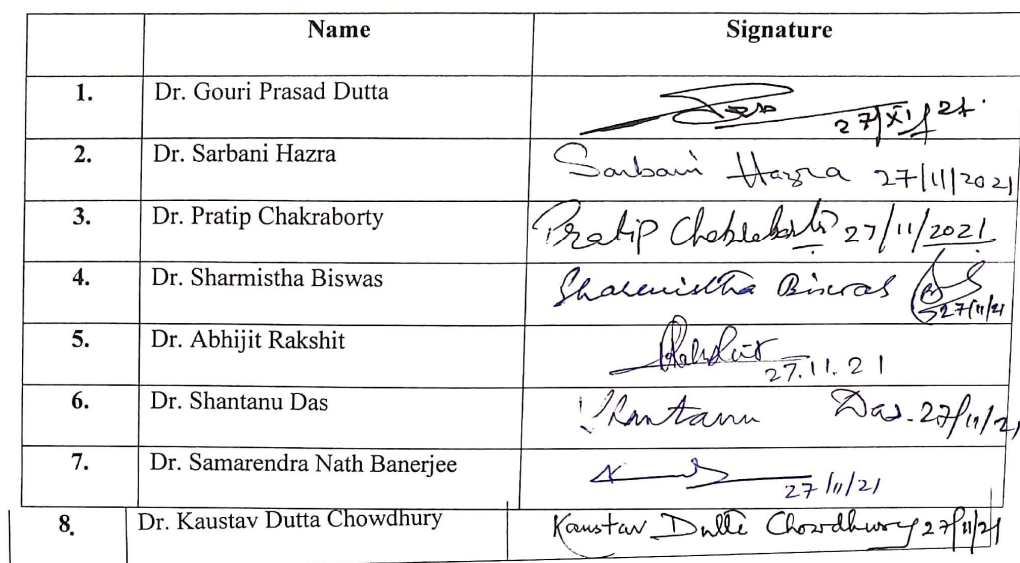 Name Signature
1. Dr. Gouri Prasad Dutta 27/XI/21.
2. Dr. Sarbani Hazra Sarbani Hazra 27/11/2021
3. Dr. Pratip Chakraborty Pratip Chakraborty 27/11/2021
4. Dr. Sharmistha Biswas Sharmistha Biswas 27/11/21
5. Dr. Abhijit Rakshit Rakshit 27.11.21
6. Dr. Shantanu Das Shantanu Das. 27/11/21
7. Dr. Samarendra Nath Banerjee 27/11/21
8. Dr. Kaustav Dutta Chowdhury Kaustav Dutta Chowdhury 27/11/21